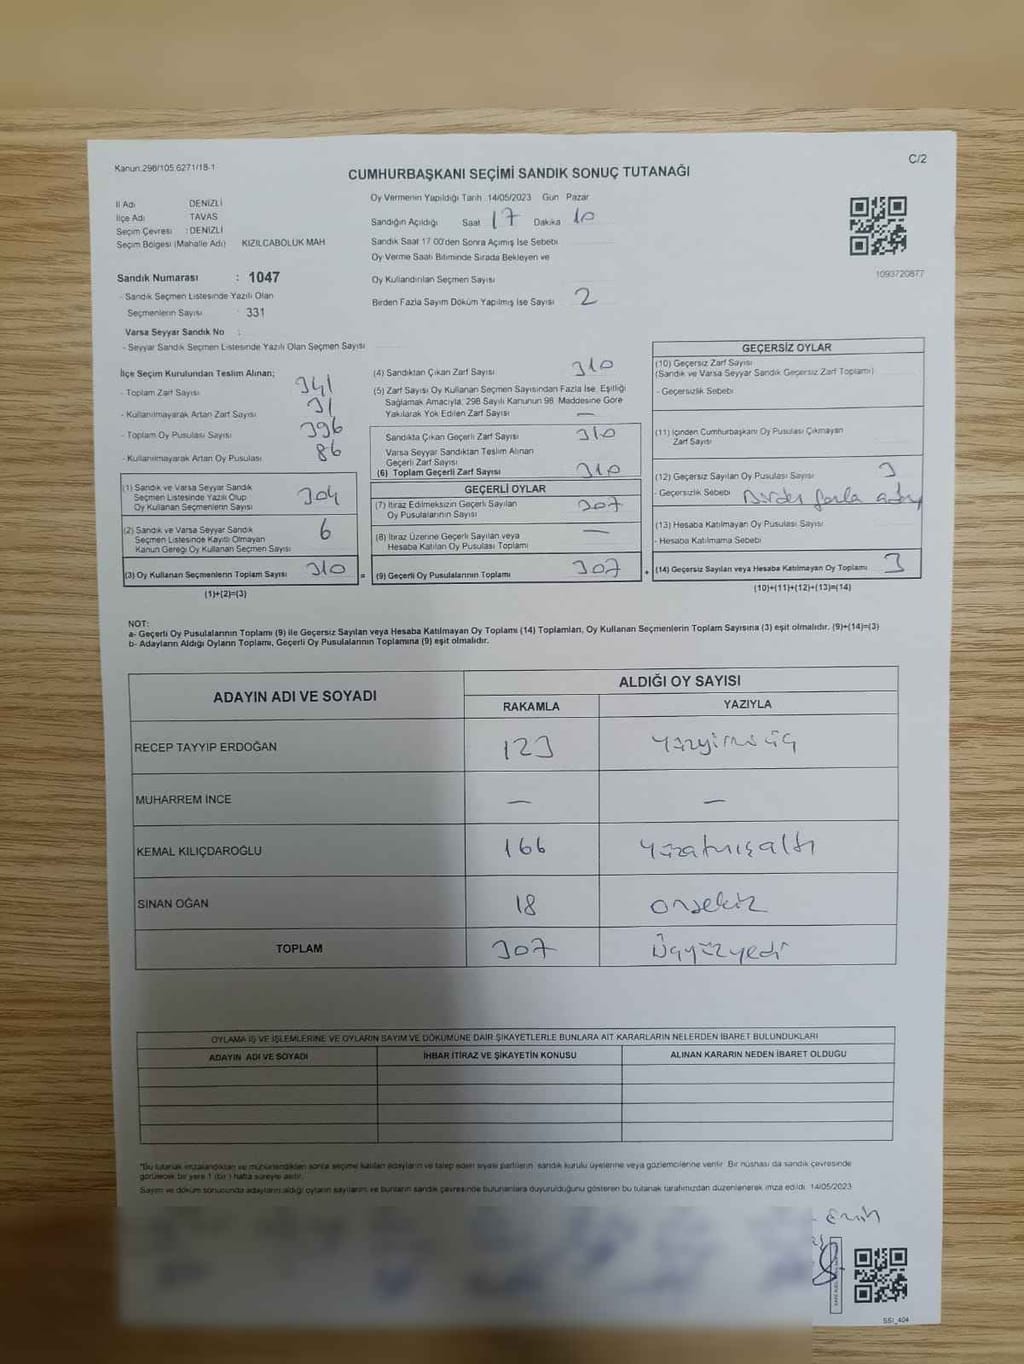 Kanun.298/105.6271/18-1
C/2
CUMHURBAŞKANI SEÇİMİ SANDIK SONUÇ TUTANAĞI
Oy Vermenin Yapıldığı Tarih :14/05/2023 Gün Pazar
İl Adı DENİZLİ
İlçe Adı : TAVAS
Seçim Çevresi : DENİZLİ
Seçim Bölgesi (Mahalle Adı) KIZILCABOLUK MAH
Sandığın Açıldığı Saat 17 Dakika 10
Sandık Saat 17 00'den Sonra Açımış İse Sebebi
Oy Verme Saati Bitiminde Sırada Bekleyen ve
Oy Kullandırılan Seçmen Sayısı
Birden Fazla Sayım Döküm Yapılmış İse Sayısı 2
1093720877
Sandık Numarası : 1047
- Sandık Seçmen Listesinde Yazılı Olan
Seçmenlerin Sayısı : 331
Varsa Seyyar Sandık No :
- Seyyar Sandık Seçmen Listesinde Yazılı Olan Seçmen Sayısı
İlçe Seçim Kurulundan Teslim Alınan;
- Toplam Zarf Sayısı 341
- Kullanılmayarak Artan Zarf Sayısı 31
- Toplam Oy Pusulası Sayısı 396
- Kullanılmayarak Artan Oy Pusulası 86
(1) Sandık ve Varsa Seyyar Sandık
Seçmen Listesinde Yazılı Olup
Oy Kullanan Seçmenlerin Sayısı 304
(2) Sandık ve Varsa Seyyar Sandık
Seçmen Listesinde Kayıtlı Olmayan
Kanun Gereği Oy Kullanan Seçmen Sayısı 6
(3) Oy Kullanan Seçmenlerin Toplam Sayısı 310
(1)+(2)=(3)
(4) Sandıktan Çıkan Zarf Sayısı 310
(5) Zarf Sayısı Oy Kullanan Seçmen Sayısından Fazla İse, Eşitliği
Sağlamak Amacıyla, 298 Sayılı Kanunun 98. Maddesine Göre
Yakılarak Yok Edilen Zarf Sayısı —
Sandıkta Çıkan Geçerli Zarf Sayısı 310
Varsa Seyyar Sandıktan Teslim Alınan
Geçerli Zarf Sayısı
(6) Toplam Geçerli Zarf Sayısı 310
GEÇERLİ OYLAR
(7) İtiraz Edilmeksizin Geçerli Sayılan
Oy Pusulalarının Sayısı 307
(8) İtiraz Üzerine Geçerli Sayılan veya
Hesaba Katılan Oy Pusulası Toplamı —
= (9) Geçerli Oy Pusulalarının Toplamı 307
GEÇERSİZ OYLAR
(10) Geçersiz Zarf Sayısı
(Sandık ve Varsa Seyyar Sandık Geçersiz Zarf Toplamı)
- Geçersizlik Sebebi
(11) İçinden Cumhurbaşkanı Oy Pusulası Çıkmayan
Zarf Sayısı
(12) Geçersiz Sayılan Oy Pusulası Sayısı 3
- Geçersizlik Sebebi Birden fazla aday
(13) Hesaba Katılmayan Oy Pusulası Sayısı
- Hesaba Katılmama Sebebi
+ (14) Geçersiz Sayılan veya Hesaba Katılmayan Oy Toplamı 3
(10)+(11)+(12)+(13)=(14)
NOT:
a- Geçerli Oy Pusulalarının Toplamı (9) ile Geçersiz Sayılan veya Hesaba Katılmayan Oy Toplamı (14) Toplamları, Oy Kullanan Seçmenlerin Toplam Sayısına (3) eşit olmalıdır. (9)+(14)=(3)
b- Adayların Aldığı Oyların Toplamı, Geçerli Oy Pusulalarının Toplamına (9) eşit olmalıdır.
ADAYIN ADI VE SOYADI
ALDIĞI OY SAYISI
RAKAMLA YAZIYLA
RECEP TAYYIP ERDOĞAN 123 yüzyirmiüç
MUHARREM İNCE — —
KEMAL KILIÇDAROĞLU 166 yüzatmışaltı
SİNAN OĞAN 18 onsekiz
TOPLAM 307 Üçyüzyedi
OYLAMA İŞ VE İŞLEMLERİNE VE OYLARIN SAYIM VE DÖKÜMÜNE DAİR ŞİKAYETLERLE BUNLARA AİT KARARLARIN NELERDEN İBARET BULUNDUKLARI
ADAYIN ADI VE SOYADI İHBAR İTİRAZ VE ŞİKAYETİN KONUSU ALINAN KARARIN NEDEN İBARET OLDUĞU
*Bu tutanak imzalandıktan ve mühürlendikten sonra seçime katılan adayların ve talep eden siyasi partilerin sandık kurulu üyelerine veya gözlemcilerine verilir. Bir nüshası da sandık çevresinde
görülecek bir yere 1 (bir) hafta süreyle asılır.
Sayım ve döküm sonucunda adayların aldığı oyların sayılarını ve bunların sandık çevresinde bulunanlara duyurulduğunu gösteren bu tutanak tarafımızdan düzenlenerek imza edildi. 14/05/2023
SS1_404